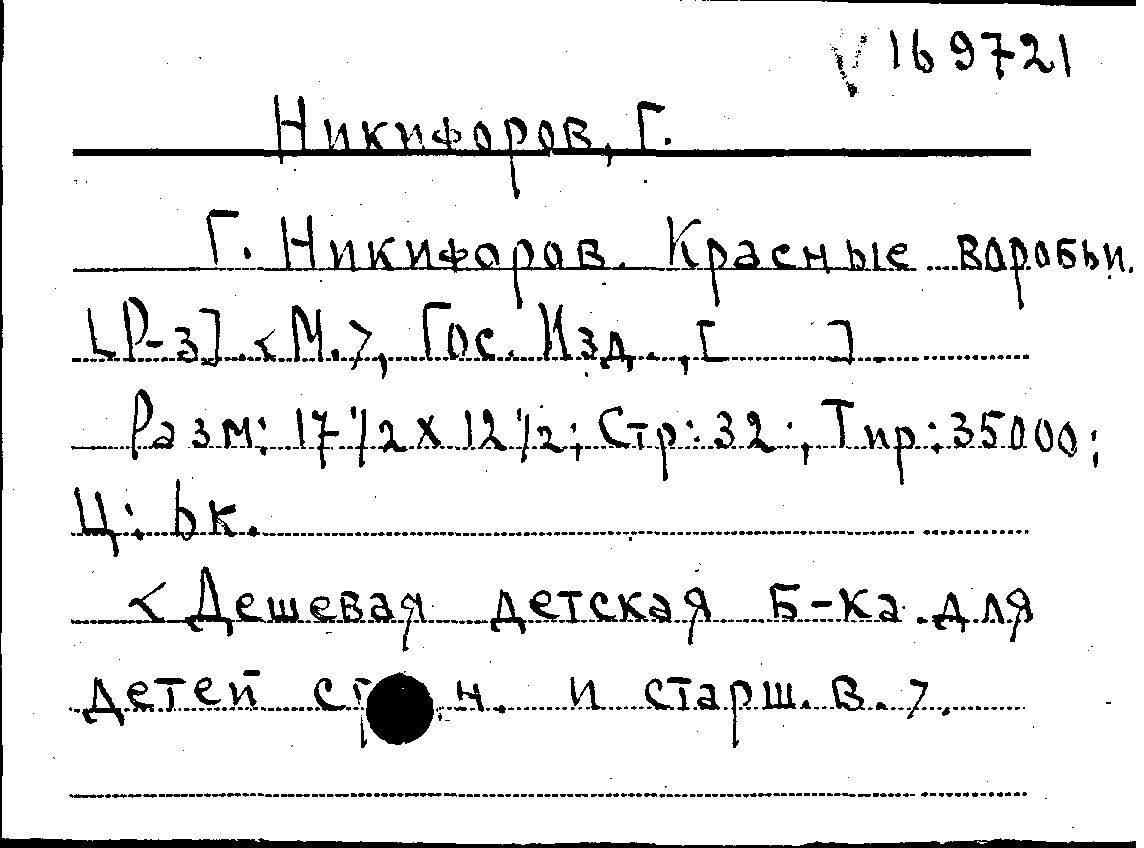 V 169721
Никифоров, Г.
Г. Никифоров. Красные воробьи.
[Р-з] <М.>, Гос. Изд., [ ]
Разм: 17 1/2 x 12 1/2; Стр: 32; Тир: 35000;
Ц: 6к.
<Дешевая детская Б-ка для
детей и старш. в.>.